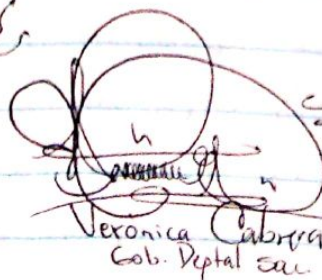 Veronica Cabrera
Gob. Deptal Sac.